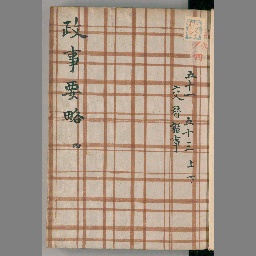 政事要略 四
五十一 五十三 上下
交替雜事